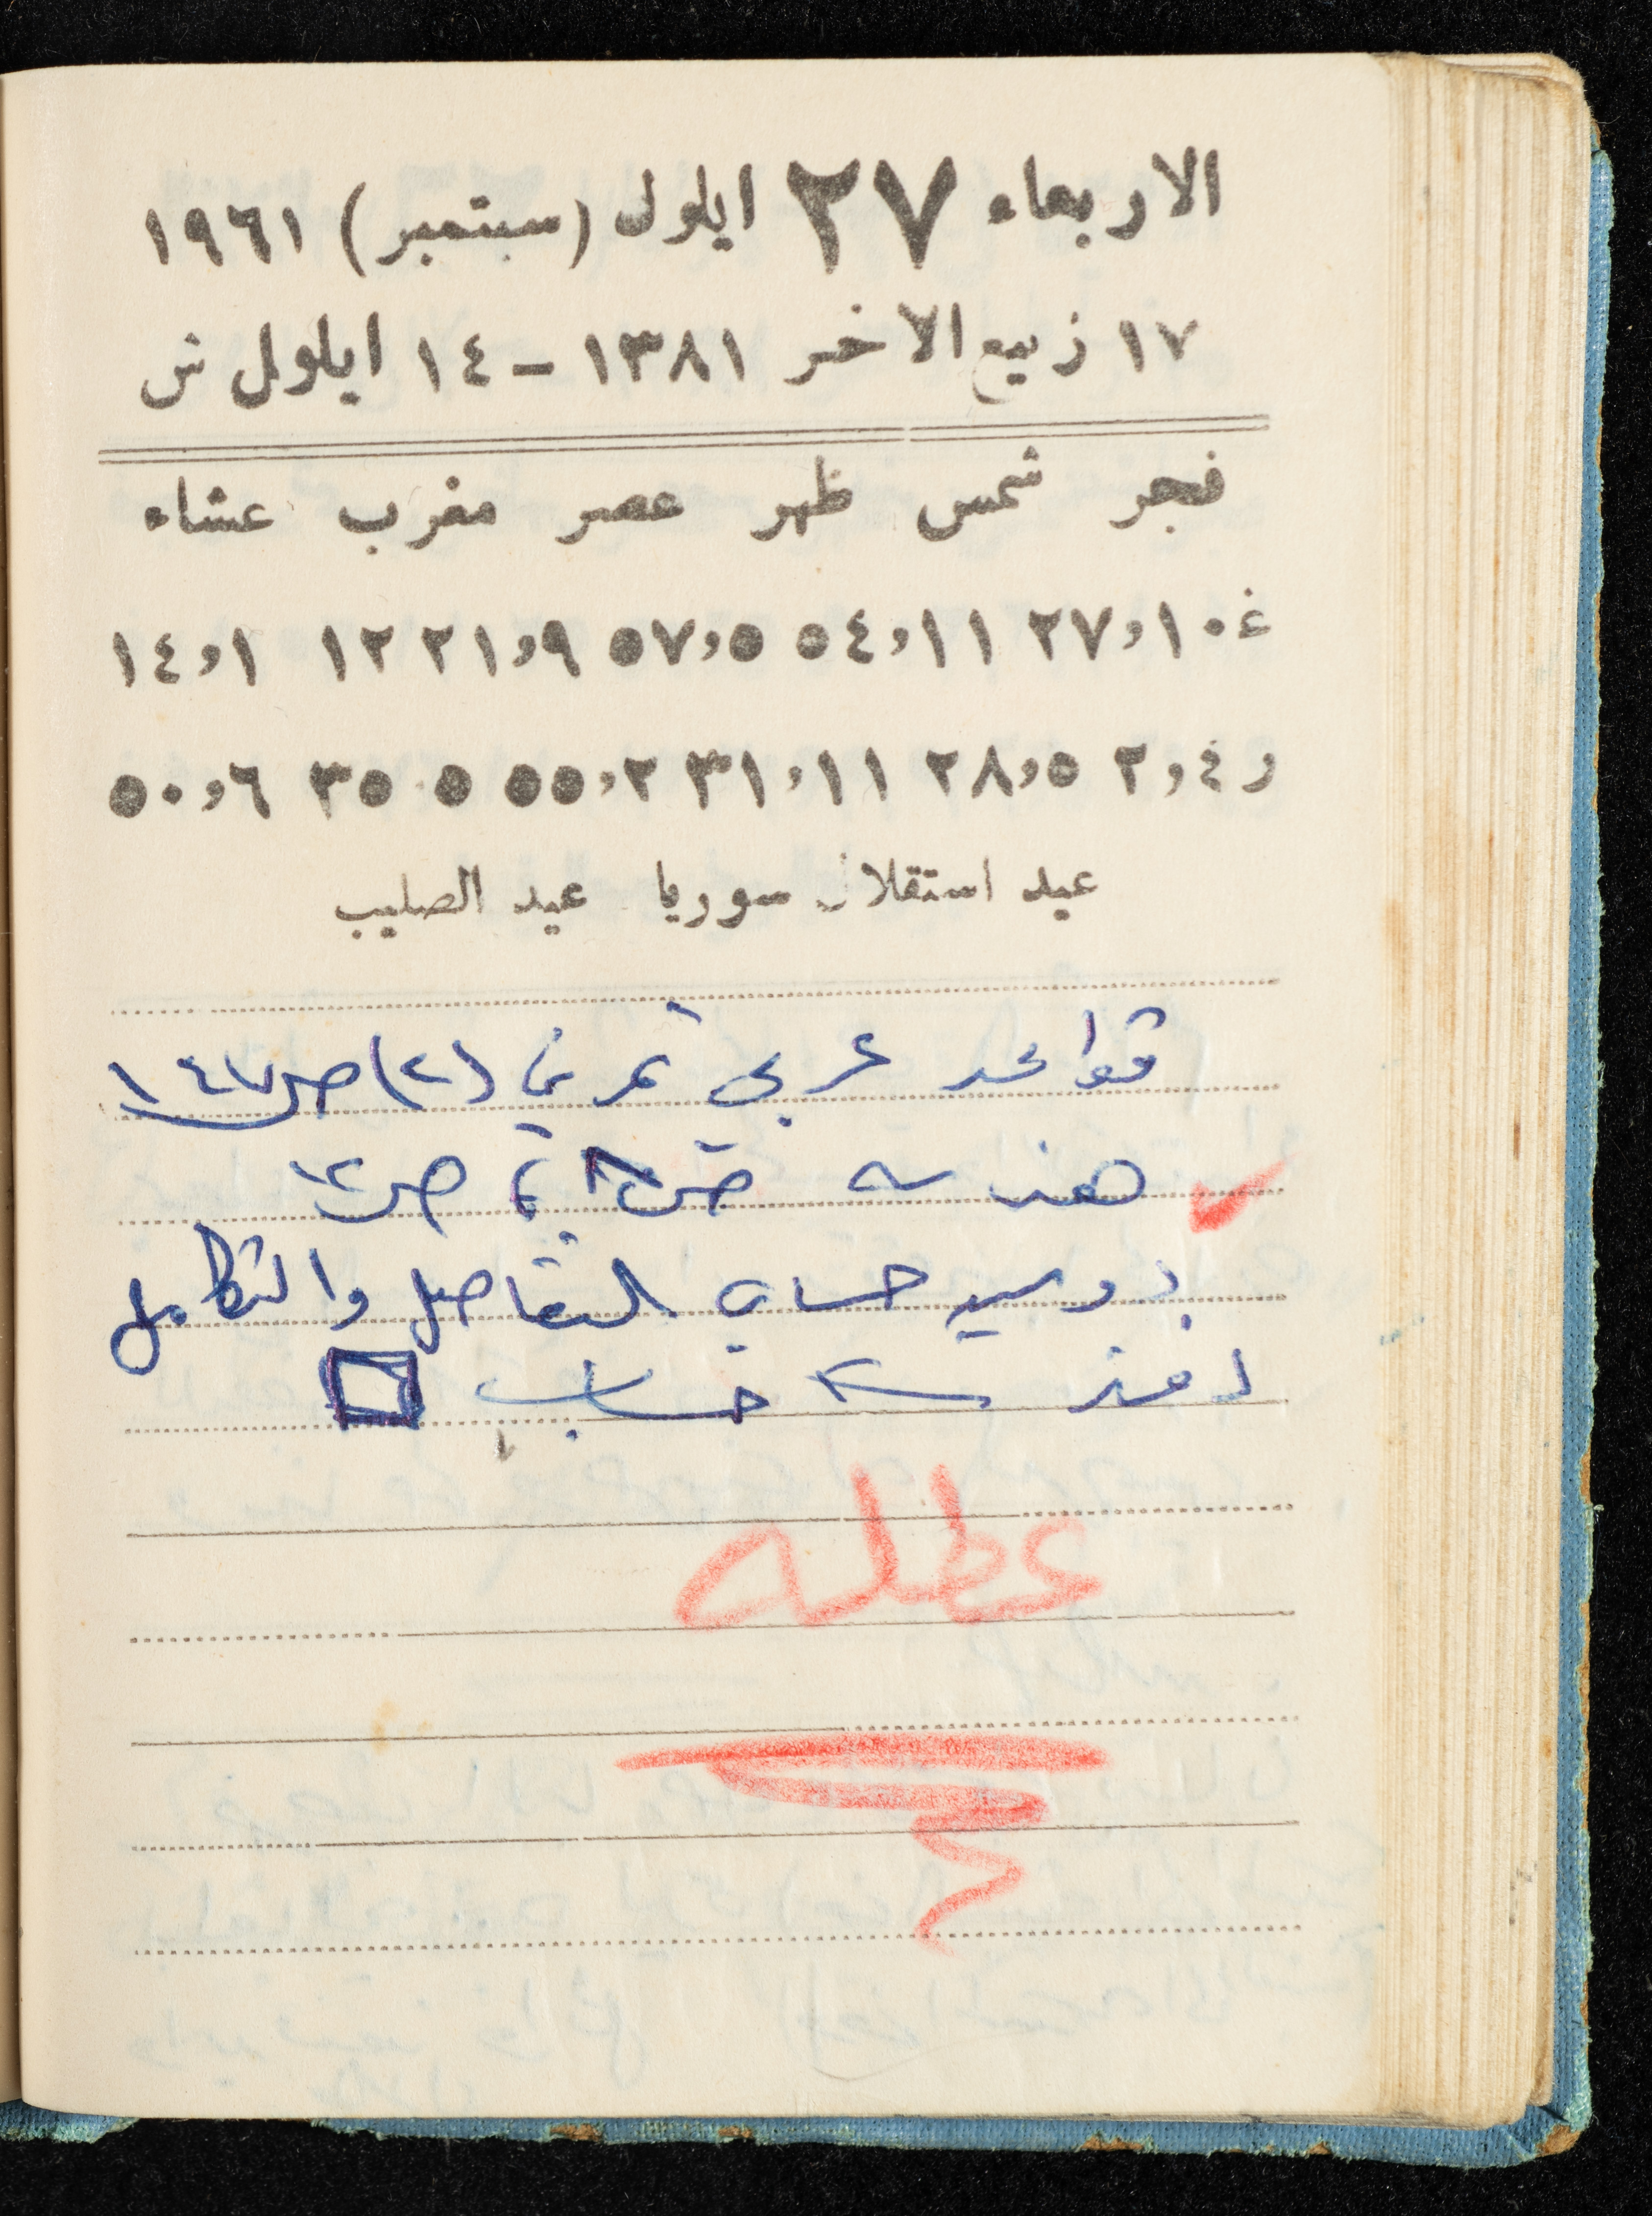 الاربعاء ٢٧ ايلول (سبتمبر) ١٩٦١
١٧ ربيع الاخر ١٣٨١ - ١٤ ايلول ش
فجر شمس ظهر عصر مغرب عشاء
غ ١٠ر٢٧ ١١ر٥٤ ٥ر٥٧ ٩ر٢١ ١٢ ١ر١٤
ز ٤ر٢ ٥ر٢٨ ١١ر٣١ ٢ر٥٥ ٥ ٣٥ ٦ر٥٠
عيد استقلال سوريا عيد الصليب
قواعد عربي تمرين (٢) ص ١٤٧
هندسه ص ٨ ص ١٢
دوسيه حساب التفاضل والتكامل
دفتر حساب
عطله